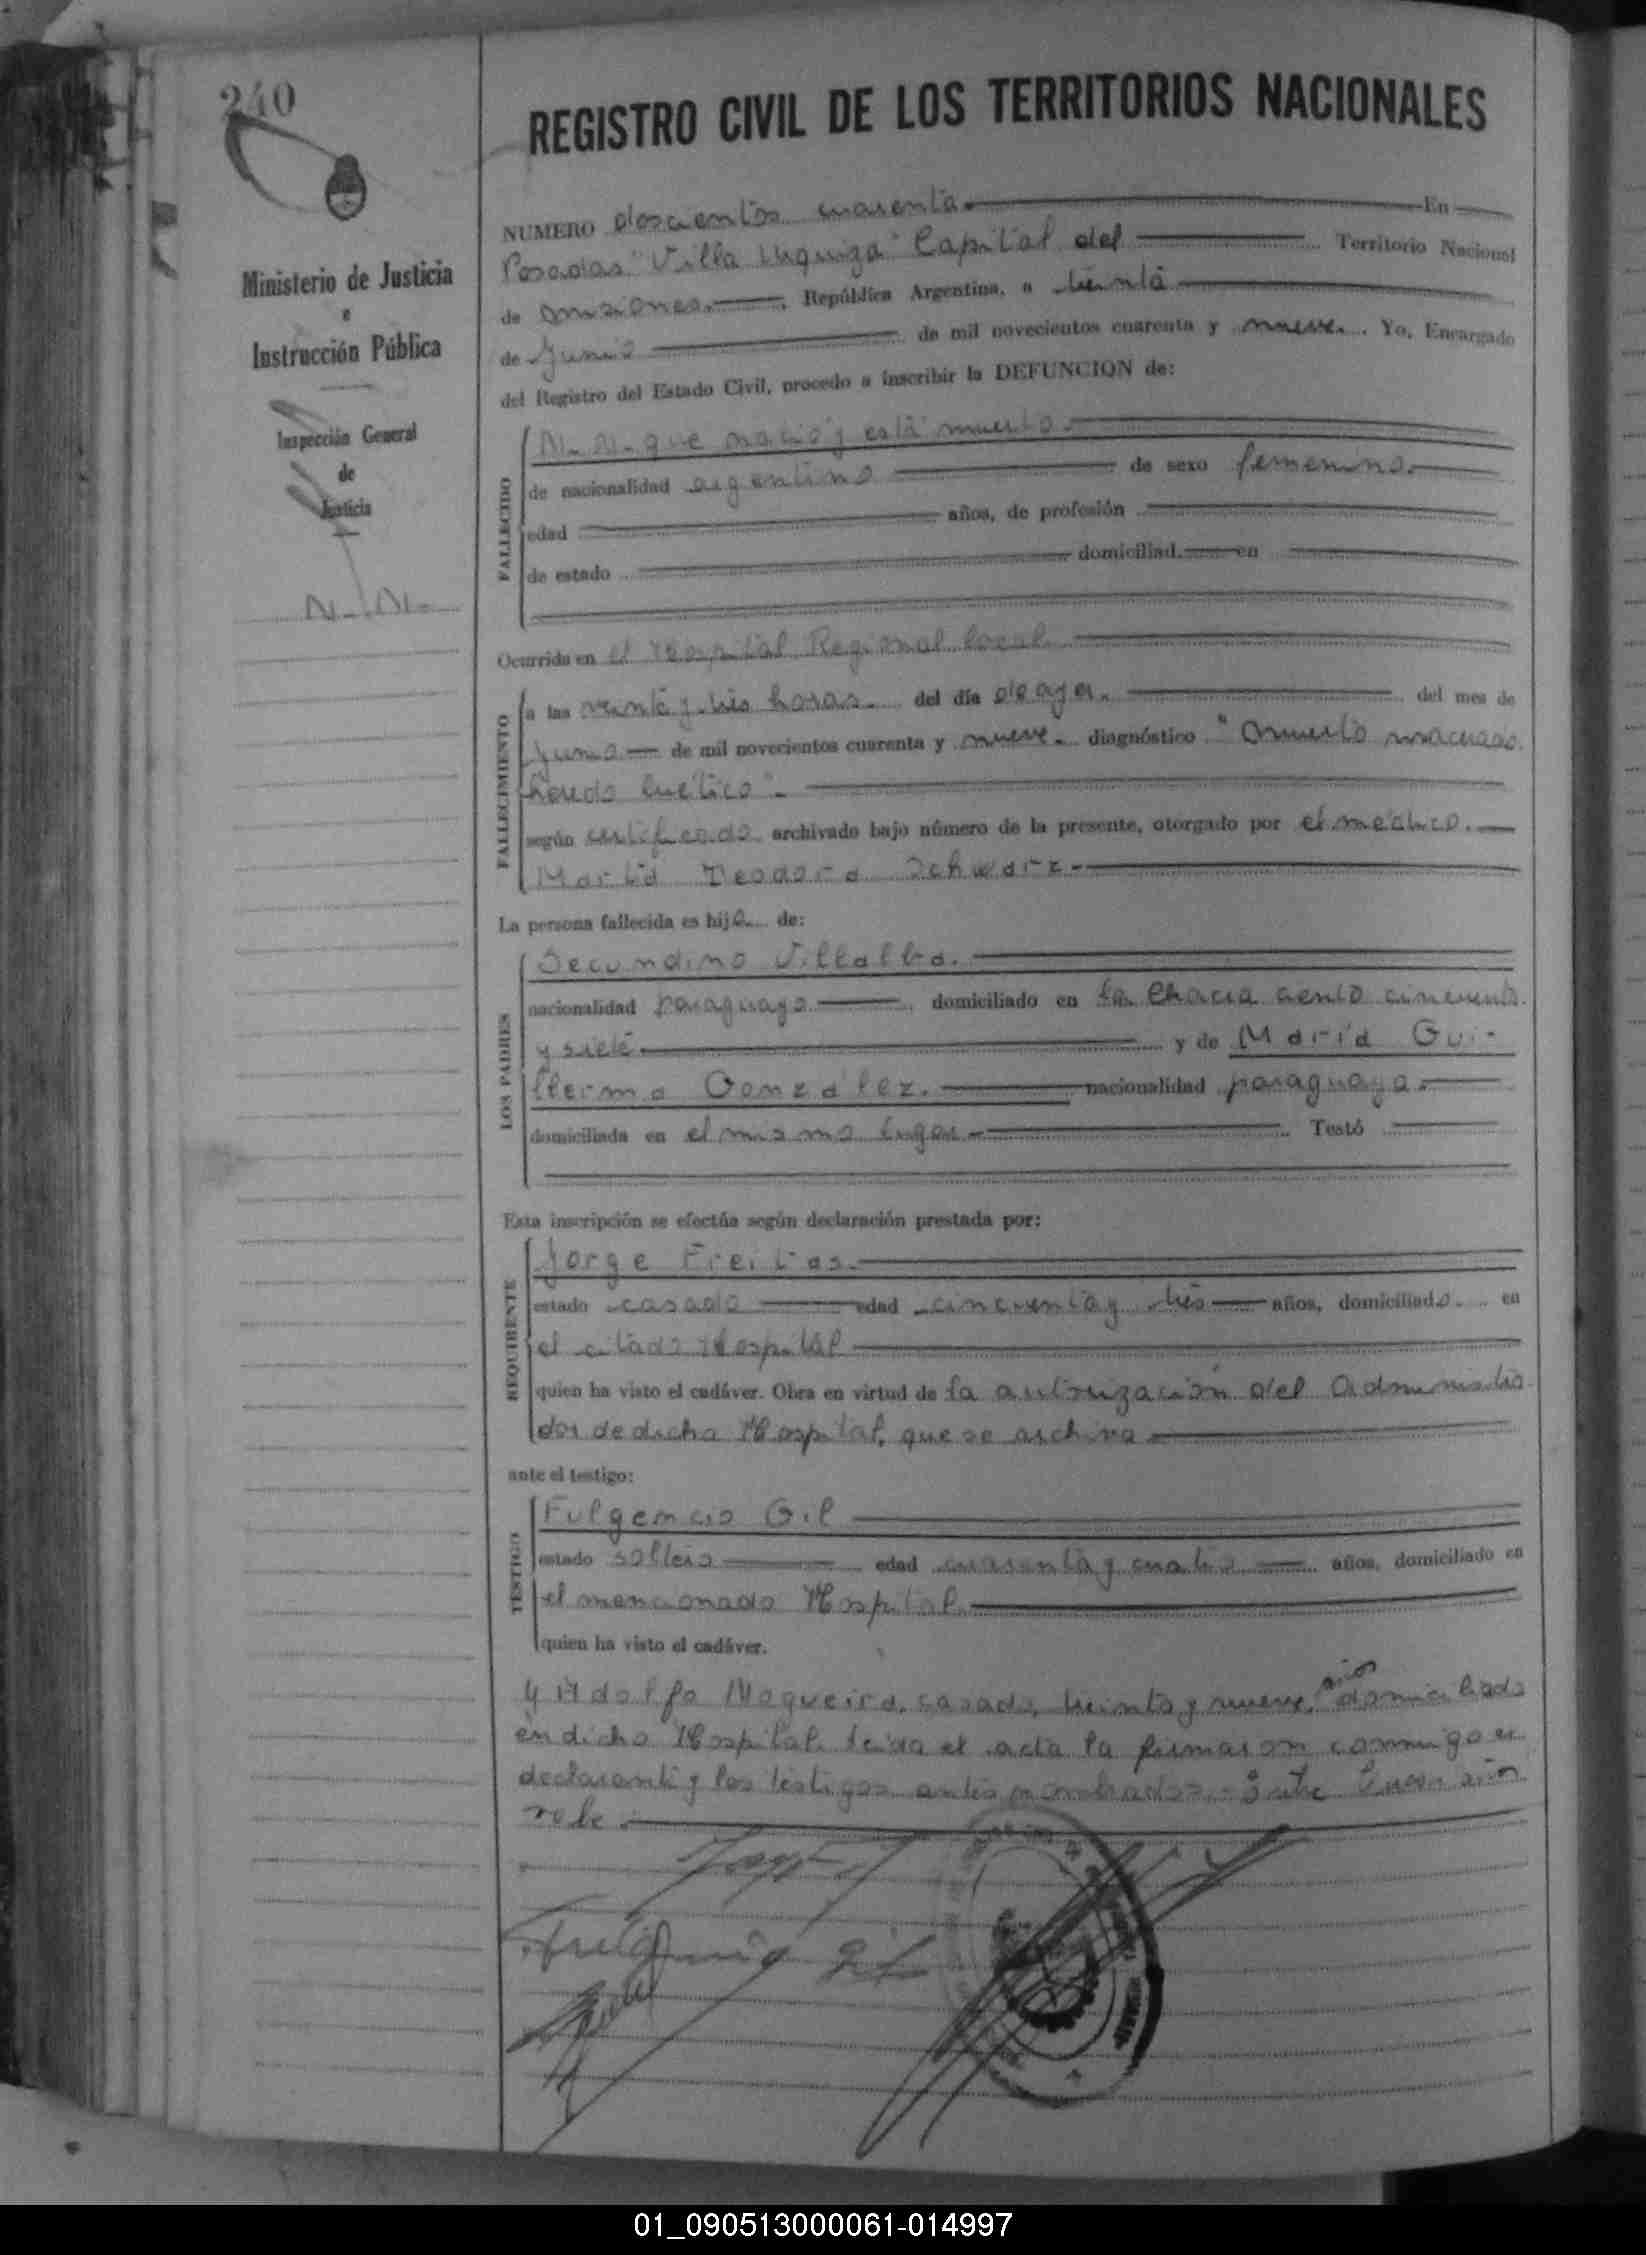 240
REGISTRO CIVIL DE LOS TERRITORIOS NACIONALES
Ministerio de Justicia
e
Instrucción Pública
Inspección General
de
Justicia
N. N.
NUMERO doscientos cuarenta. En
Posadas "Villa Urquiza" Capital del Territorio Nacional
de Misiones. República Argentina, a treinta
de Junio de mil novecientos cuarenta y nueve. Yo, Encargado
del Registro del Estado Civil, procedo a inscribir la DEFUNCION de:
FALLECIDO
N. N. que nació y está muerto
de nacionalidad argentino de sexo femenino.
edad años, de profesión
de estado domiciliad en
Ocurrida en el Hospital Regional local.
FALLECIMIENTO
a las veinte y tres horas. del día de ayer. del mes de
Junio de mil novecientos cuarenta y nueve. diagnóstico "Muerto macerado
heredo luético".
según certificado archivado bajo número de la presente, otorgado por el médico.
María Teodora Schwarz.
La persona fallecida es hija de:
LOS PADRES
Secundino Villalba.
nacionalidad paraguayo domiciliado en la Chacra ciento cincuenta
y siete y de María Gui-
llerma González. nacionalidad paraguaya.
domiciliada en el mismo lugar. Testó
Esta inscripción se efectúa según declaración prestada por:
REQUIRENTE
Jorge Freitas.
estado casado edad cincuenta y tres años, domiciliado. en
el citado Hospital
quien ha visto el cadáver. Obra en virtud de la autorización del Administra-
dor de dicho Hospital, que se archiva
ante el testigo:
TESTIGO
Fulgencio Gil
estado soltero edad cuarenta y cuatro años, domiciliado en
el mencionado Hospital.
quien ha visto el cadáver.
años
y Adolfo Maqueira, casado, treinta y nueve, domiciliado
en dicho Hospital. Leída el acta la firmaron conmigo el
declarante y los testigos antes nombrados.- Entre líneas: años
vale.
Fulgencio Gil
01_090513000061-014997